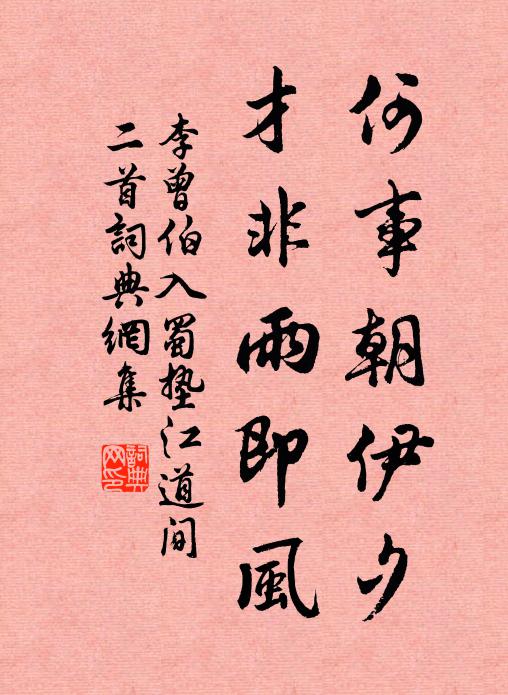 何事朝伊夕
才非雨即風
李曾伯入蜀墊江道間
二首詞典網集
詞典网印